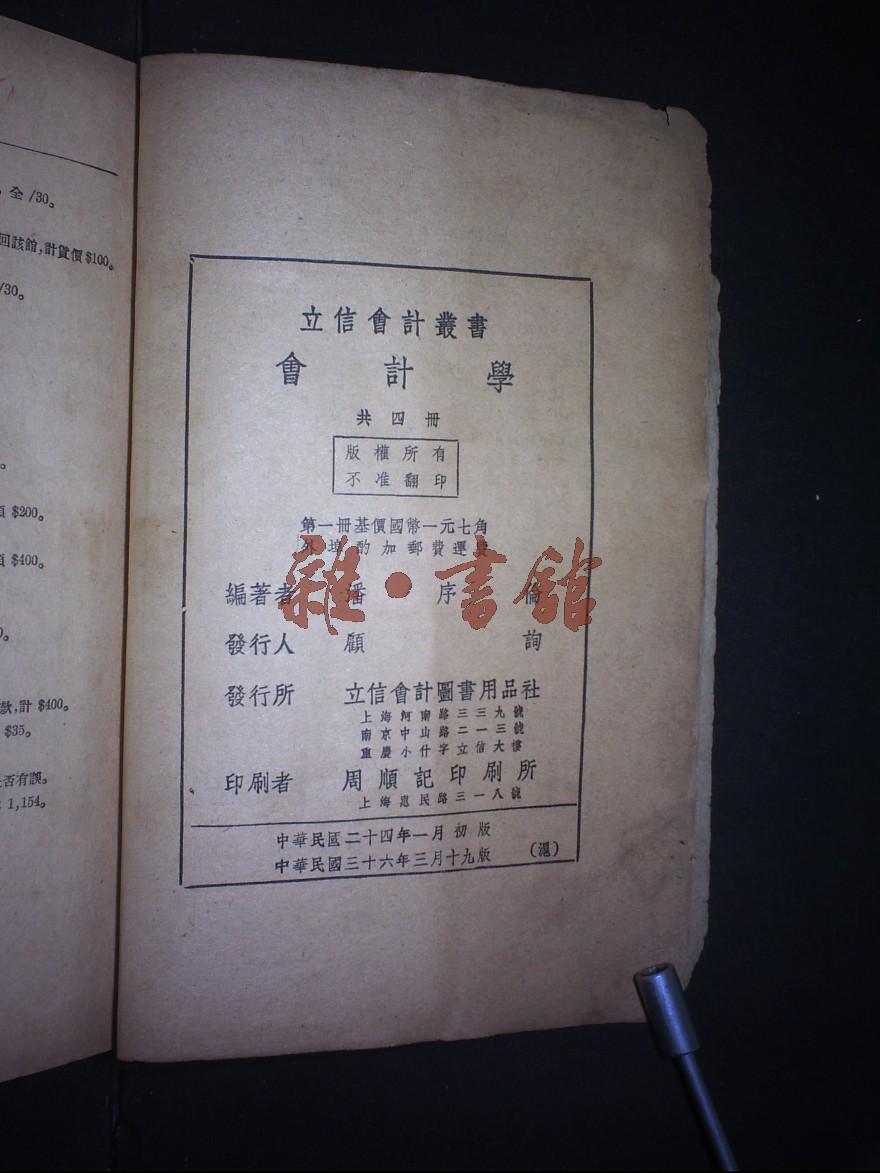 全 /30。
回該館,計貨價 $100。
/30。
$200。
$400。
款,計 $400。
$35。
否有誤。
1,154。
立信會計叢書
會計學
共四冊
版權所有
不准翻印
第一冊基價國幣一元七角
外埠酌加郵費運費
編著者 潘序倫
發行人 顧詢
發行所 立信會計圖書用品社
上海河南路三三九號
南京中山路二一三號
重慶小什字立信大樓
印刷者 周順記印刷所
上海惠民路三一八號
中華民國二十四年一月初版
中華民國三十六年三月十九版 (滬)
雜·書館